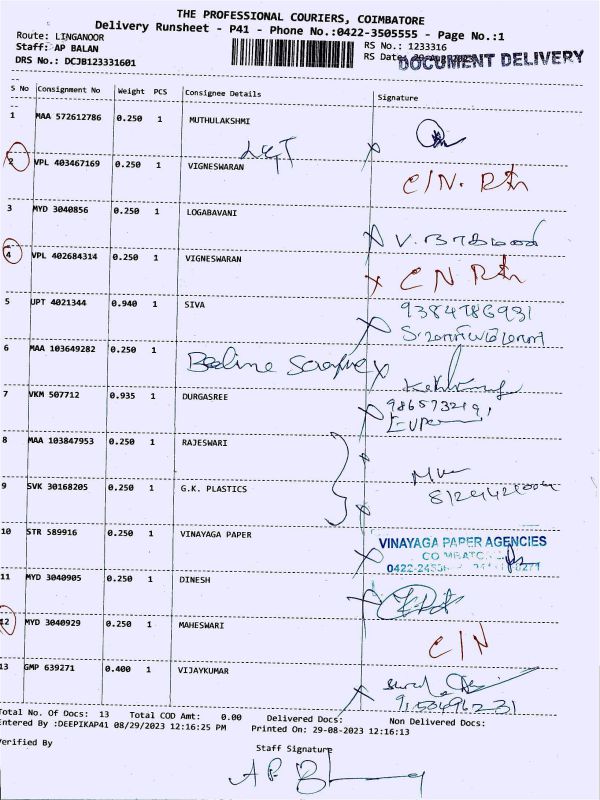 THE PROFESSIONAL COURIERS, COIMBATORE
Delivery Runsheet - P41 - Phone No.:0422-3505555 - Page No.:1
Route: LINGANOOR
RS No.: 1233316
Staff: AP BALAN
RS Date:
DOCUMENT DELIVERY
DRS No.: DCJB123331601
S No Consignment No Weight PCS Consignee Details Signature
1 MAA 572612786 0.250 1 MUTHULAKSHMI
2 VPL 403467169 0.250 1 VIGNESWARAN C/N.
3 MYD 3040856 0.250 1 LOGABAVANI
4 VPL 402684314 0.250 1 VIGNESWARAN C N
5 UPT 4021344 0.940 1 SIVA
6 MAA 103649282 0.250 1
7 VKM 507712 0.935 1 DURGASREE
8 MAA 103847953 0.250 1 RAJESWARI
9 SVK 30168205 0.250 1 G.K. PLASTICS
10 STR 589916 0.250 1 VINAYAGA PAPER
VINAYAGA PAPER AGENCIES
11 MYD 3040905 0.250 1 DINESH
12 MYD 3040929 0.250 1 MAHESWARI C/N
13 GMP 639271 0.400 1 VIJAYKUMAR
Total No. Of Docs: 13 Total COD Amt: 0.00 Delivered Docs: Non Delivered Docs:
Entered By :DEEPIKAP41 08/29/2023 12:16:25 PM Printed On: 29-08-2023 12:16:13
Verified By
Staff Signature